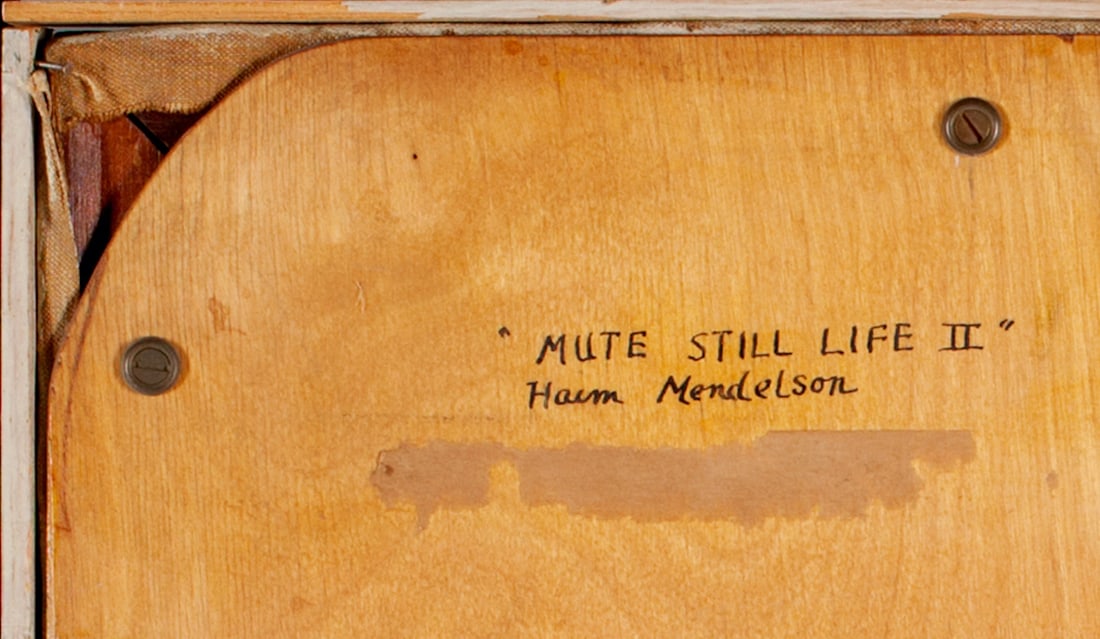 " MUTE STILL LIFE II "
Haim Mendelson